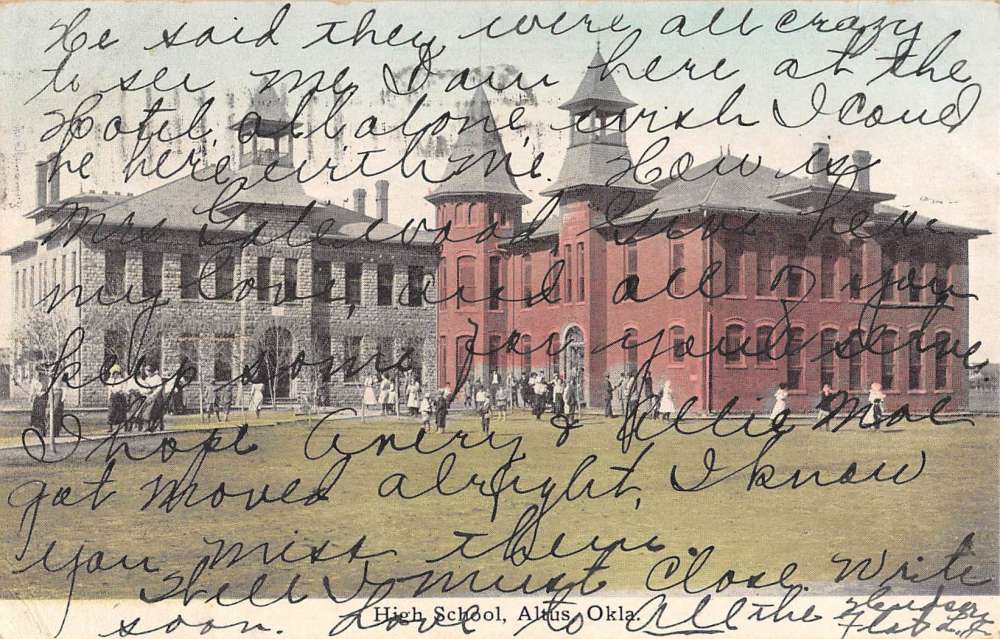 He said they were all crazy
to see me, I am here at the
Hotel, all alone, wish I Coud
be here with me. How is
Mrs Gatewood Give her
my love, and all of you
keep some for yourselves
I hope Avery & Ollie Mae
got moved alright, I know
you miss them.
Well I must Close Write
soon. Love to All the
High School, Altus, Okla.